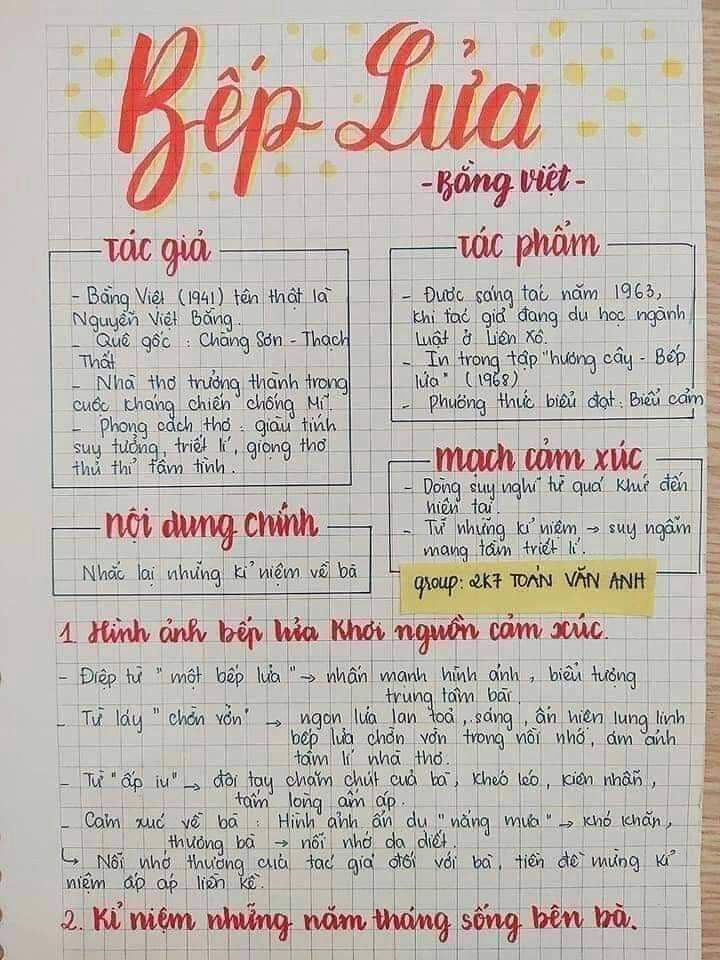 Bếp Lửa
- Bằng Việt -
tác giả
- Bằng Việt (1941) tên thật là
Nguyễn Việt Bằng.
- Quê gốc : Chàng Sơn - Thạch
Thất
- Nhà thơ trưởng thành trong
cuộc kháng chiến chống Mĩ.
- Phong cách thơ : giàu tính
suy tưởng, triết lí, giọng thơ
thủ thỉ tâm tình.
tác phẩm
- Được sáng tác năm 1963,
khi tác giả đang du học ngành
Luật ở Liên Xô.
- In trong tập "hương cây - Bếp
lửa" (1968)
- Phương thức biểu đạt : Biểu cảm
mạch cảm xúc
- Dòng suy nghĩ từ quá khứ đến
hiện tại.
- Từ những kỉ niệm → suy ngẫm
mang tầm triết lí.
nội dung chính
Nhắc lại những kỉ niệm về bà
group: 2K7 TOÁN VĂN ANH
1. Hình ảnh bếp lửa khơi nguồn cảm xúc.
- Điệp từ "một bếp lửa" → nhấn mạnh hình ảnh, biểu tượng
trung tâm bài
- Từ láy "chờn vờn" → ngọn lửa lan toả, sáng, ẩn hiện lung linh
bếp lửa chờn vờn trong nỗi nhớ, ám ảnh
tâm lí nhà thơ.
- Từ "ấp iu" → đôi tay chăm chút của bà, khéo léo, kiên nhẫn,
tấm lòng ấm áp.
- Cảm xúc về bà : Hình ảnh ẩn dụ "nắng mưa" → khó khăn,
thương bà → nỗi nhớ da diết.
↳ Nỗi nhớ thương của tác giả đối với bà, tiền đề mừng kỉ
niệm ấp áp liền kề.
2. Kỉ niệm những năm tháng sống bên bà.